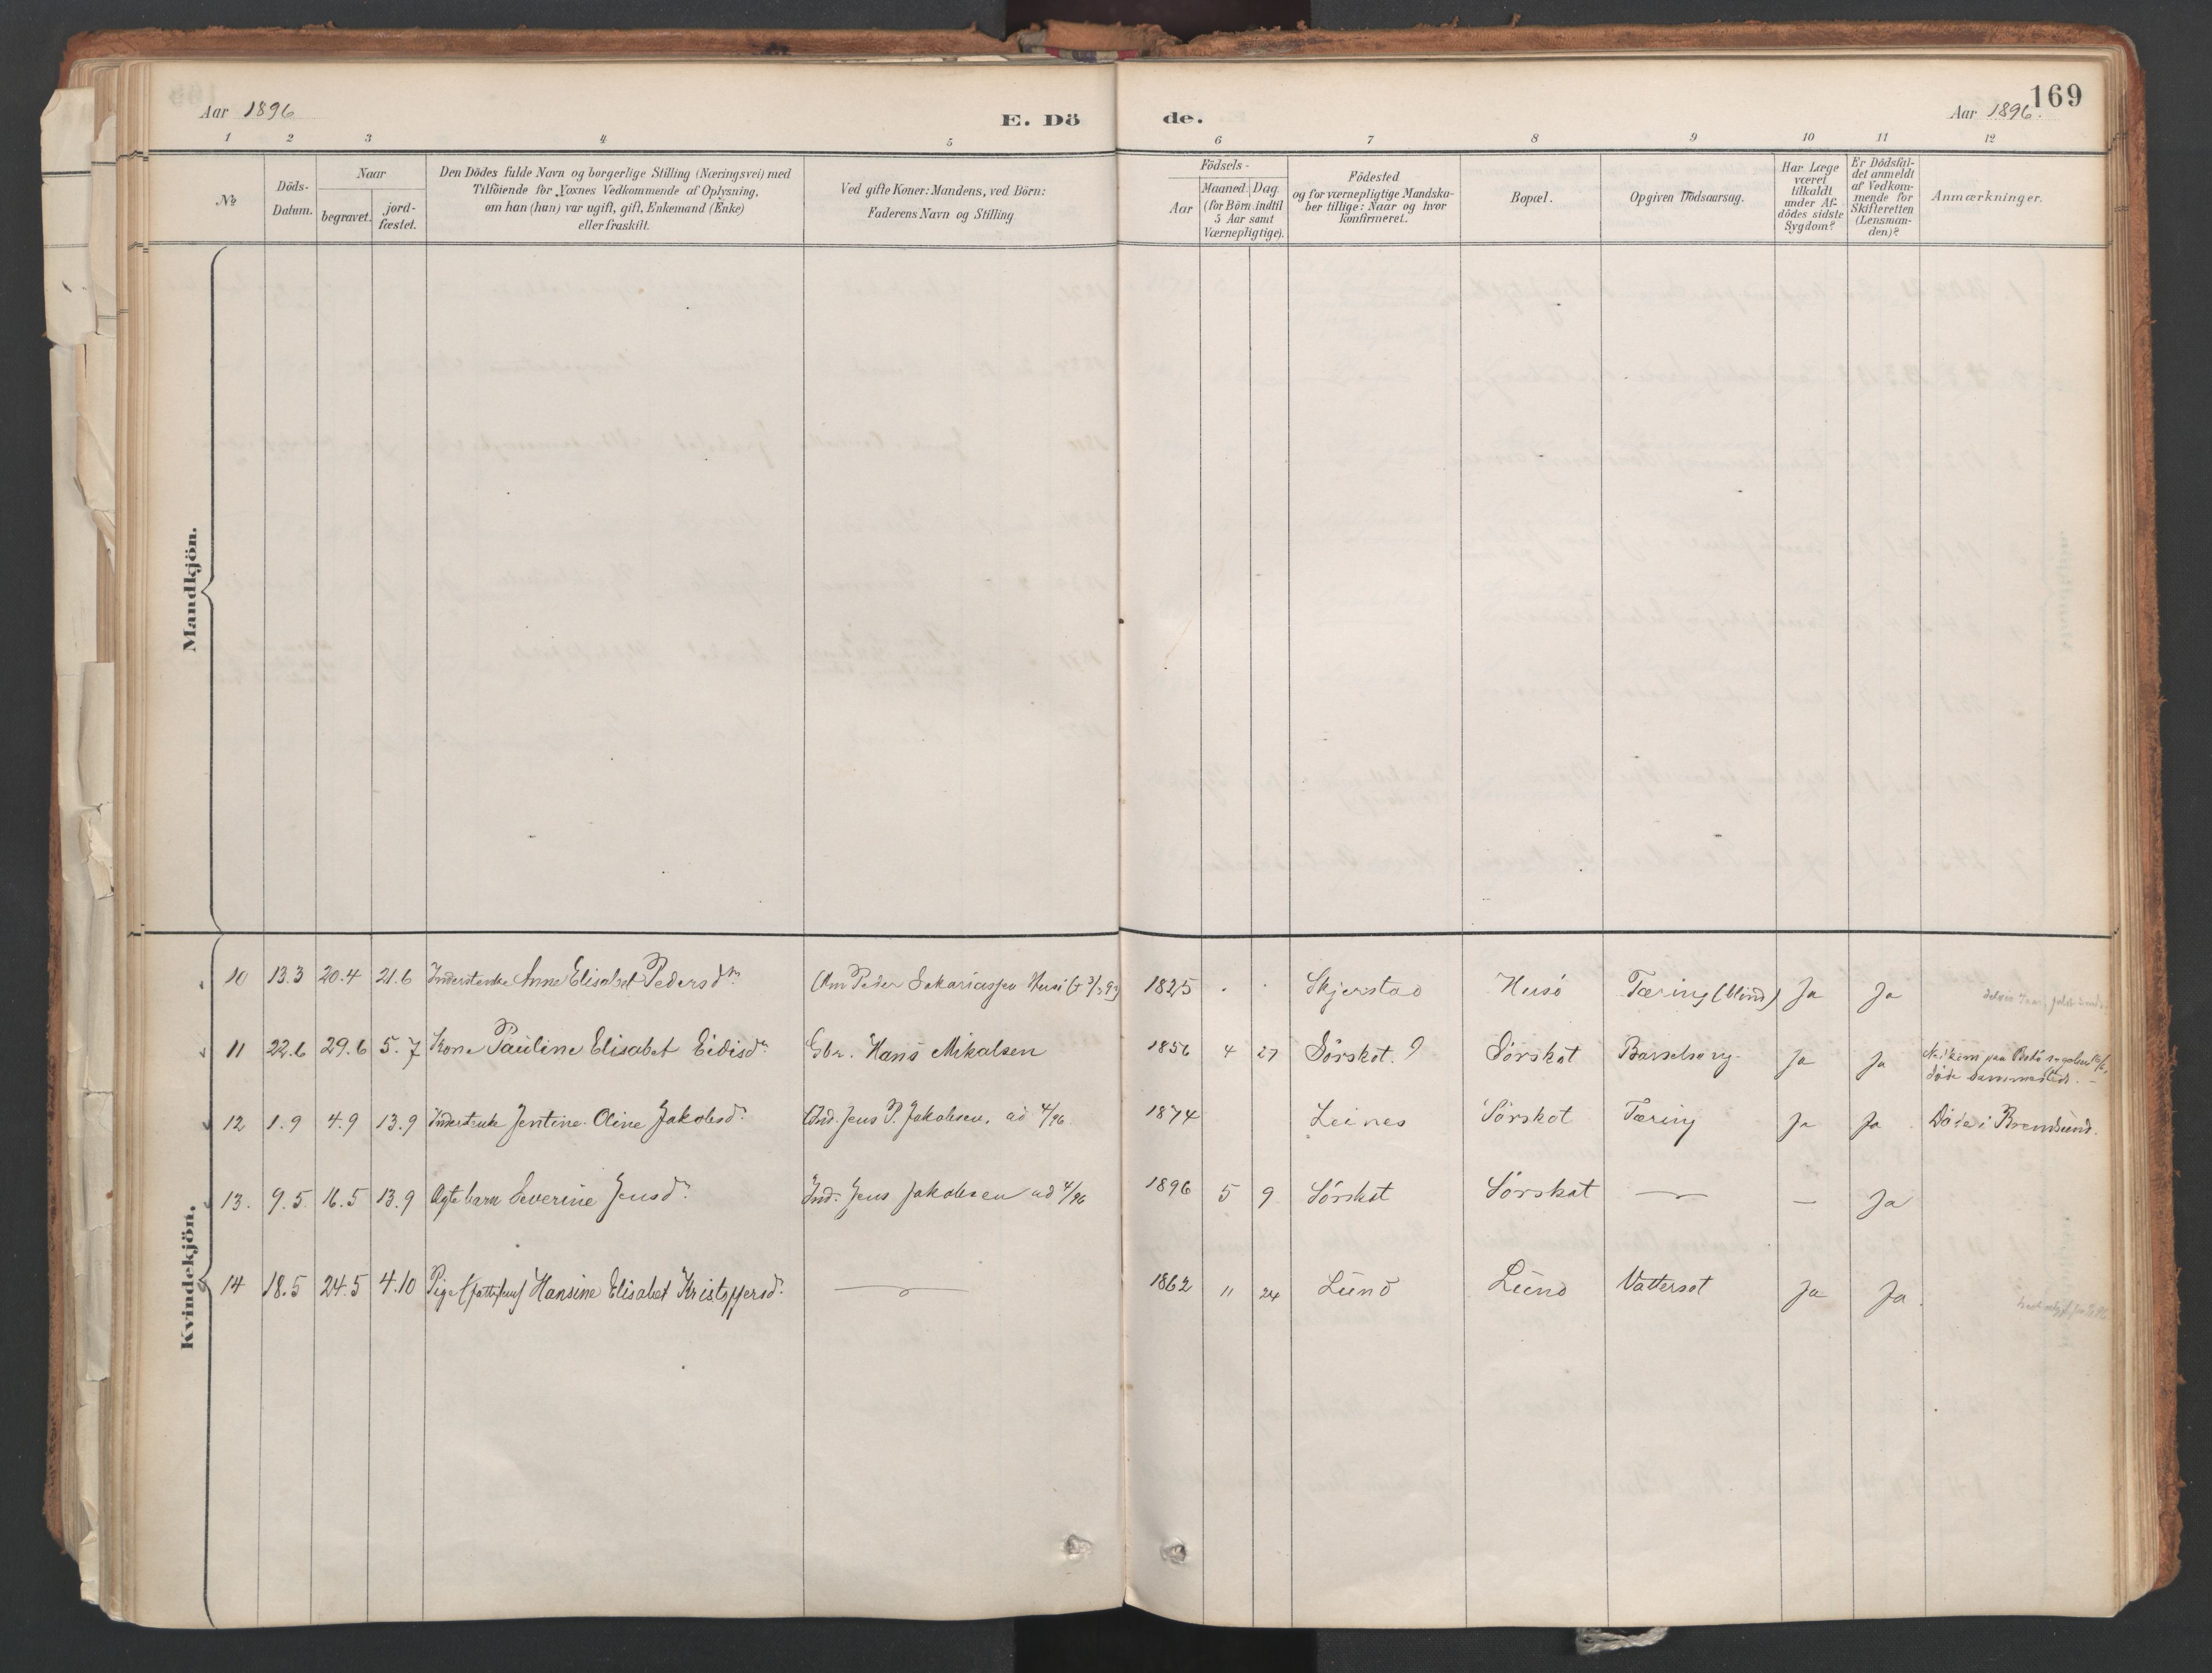 Aar 1896
E. Dö
de.
Aar 1896.
169
1 2 3 4 5 6 7 8 9 10 11 12
No
Döds-
Datum.
Naar
begravet.
jord-
fæstet.
Den Dödes fulde Navn og borgerlige Stilling (Næringsvei) med
Tilföiende for Voxnes Vedkommende af Oplysning,
om han (hun) var ugift, gift, Enkemand (Enke)
eller fraskilt.
Ved gifte Koner: Mandens, ved Börn:
Faderens Navn og Stilling.
Födsels-
Aar
Maaned. Dag.
(for Börn indtil
5 Aar samt
Værnepligtige).
Födested
og for værnepligtige Mandska-
ber tillige: Naar og hvor
konfirmeret.
Bopæl.
Opgiven Dödsaarsag.
Har Læge
været
tilkaldt
under Af-
dödes sidste
Sygdom?
Er Dödsfal-
det anmeldt
af Vedkom-
mende for
Skifteretten
(Lensman-
den)?
Anmærkninger.
Mandkjön.
Kvindekjön.
10 13.3 20.4 21.6 Anne Elisabet Pedersdtr Peder Sakariassen Husö 1825 Skjerstad Husö Tæring (blind) Ja Ja
11 22.6 29.6 5.7 Kone Pauline Elisabet Eidisdr. Gbr. Hans Mikalsen 1856 4 27 Sörskot.? Sörskot Barselseng Ja Ja
döde sammesteds.
12 1.9 4.9 13.9 Jentine Oline Jakobsd. Jens P. Jakobsen, ad 4/96 1874 Leines Sörskot Tæring Ja Ja Döde i Bremsund.
13. 9.5 16.5 13.9 Ægtebarn Severine Jensdr. Ind. Jens Jakobsen ad 4/96 1896 5 9 Sörskot Sörskot — — Ja
14 18.5 24.5 4.10 Pige Hansine Elisabet Kristoffersd. — 1862 11 24 Lund Lund Vattersot Ja Ja.